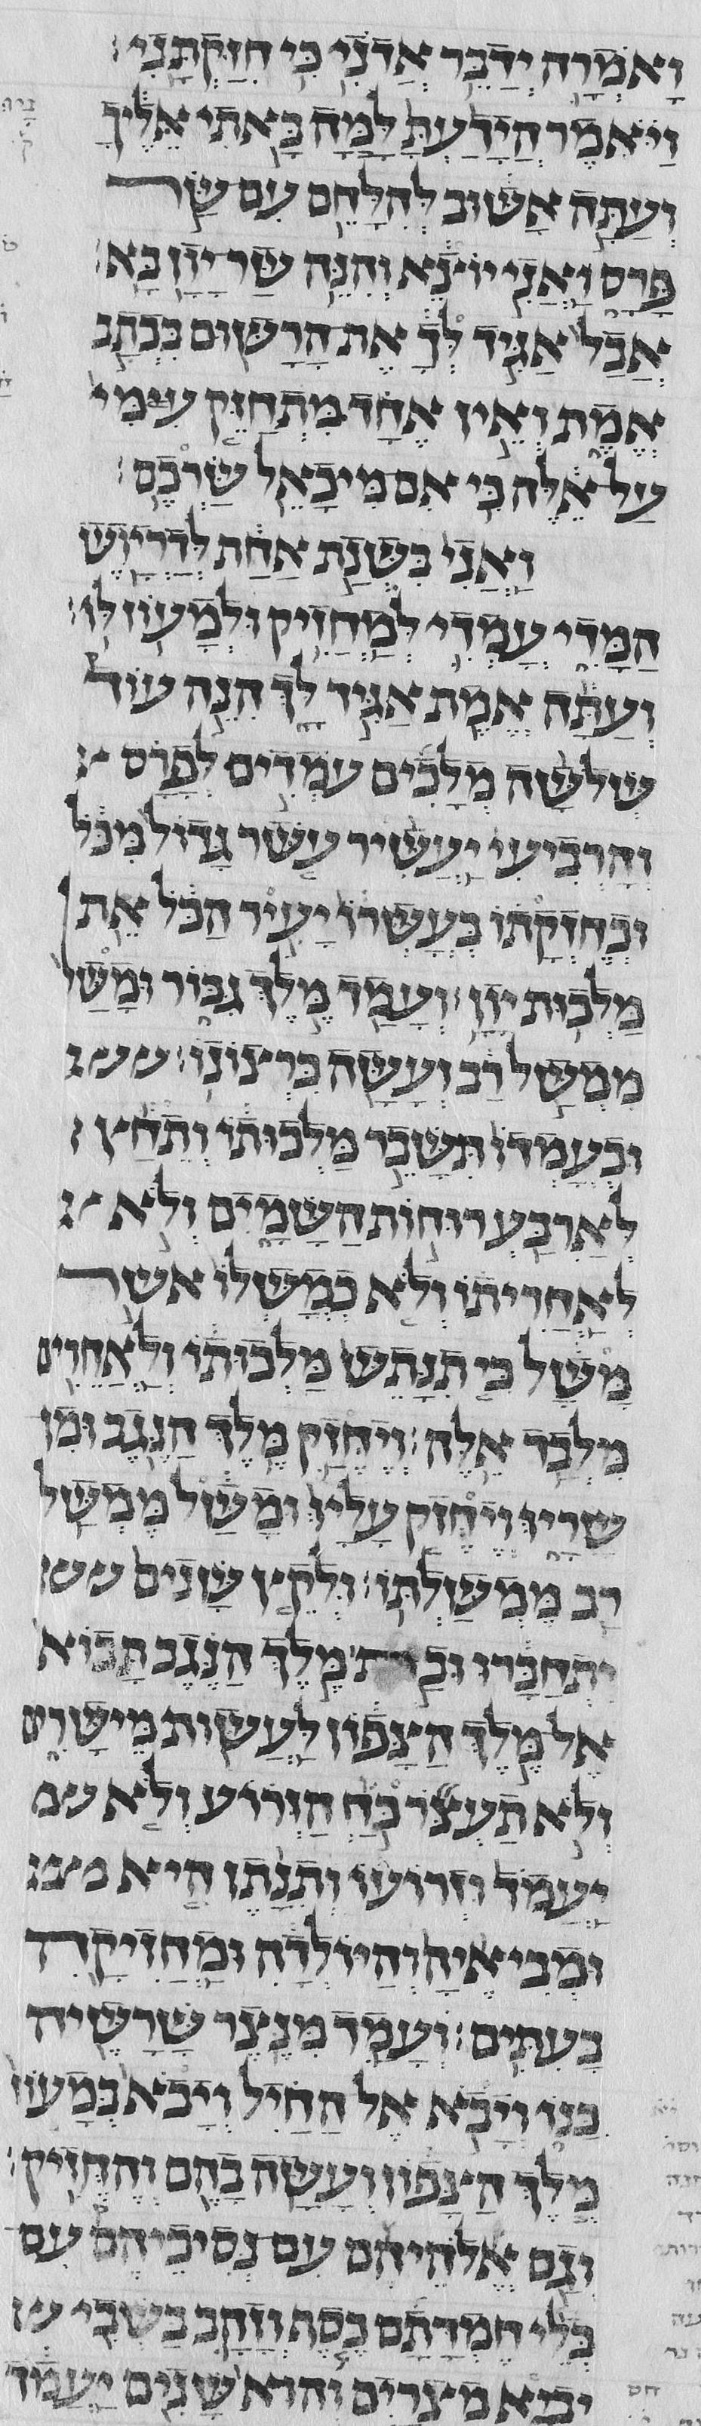 ואמרה ידבר אדני כי חזקתני׃
ויאמר הידעת למה באתי אליך
ועתה אשוב להלחם עם שר
פרס ואני יוצא והנה שר יון בא׃
אבל אגיד לך את הרשום בכתב
אמת ואין אחד מתחזק עמי
על אלה כי אם מיכאל שרכם׃
ואני בשנת אחת לדריוש
המדי עמדי למחזיק ולמעוז לו׃
ועתה אמת אגיד לך הנה עוד
שלשה מלכים עמדים לפרס
והרביעי יעשיר עשר גדול מכל
ובחזקתו בעשרו יעיר הכל את
מלכות יון׃ ועמד מלך גבור ומשל
ממשל רב ועשה כרצונו׃
ובעמדו תשבר מלכותו ותחץ
לארבע רוחות השמים ולא
לאחריתו ולא כמשלו אשר
משל כי תנתש מלכותו ולאחרים
מלבד אלה׃ ויחזק מלך הנגב ומן
שריו ויחזק עליו ומשל ממשל
רב ממשלתו׃ ולקץ שנים
יתחברו ובת מלך הנגב תבוא
אל מלך הצפון לעשות מישרים
ולא תעצר כח הזרוע ולא
יעמד וזרועו ותנתן היא
ומביאיה והיולדה ומחזיקה
בעתים׃ ועמד מנצר שרשיה
כנו ויבא אל החיל ויבא במעוז
מלך הצפון ועשה בהם והחזיק׃
וגם אלהיהם עם נסיכיהם עם
כלי חמדתם כסף וזהב בשבי
יבא מצרים והוא שנים יעמד